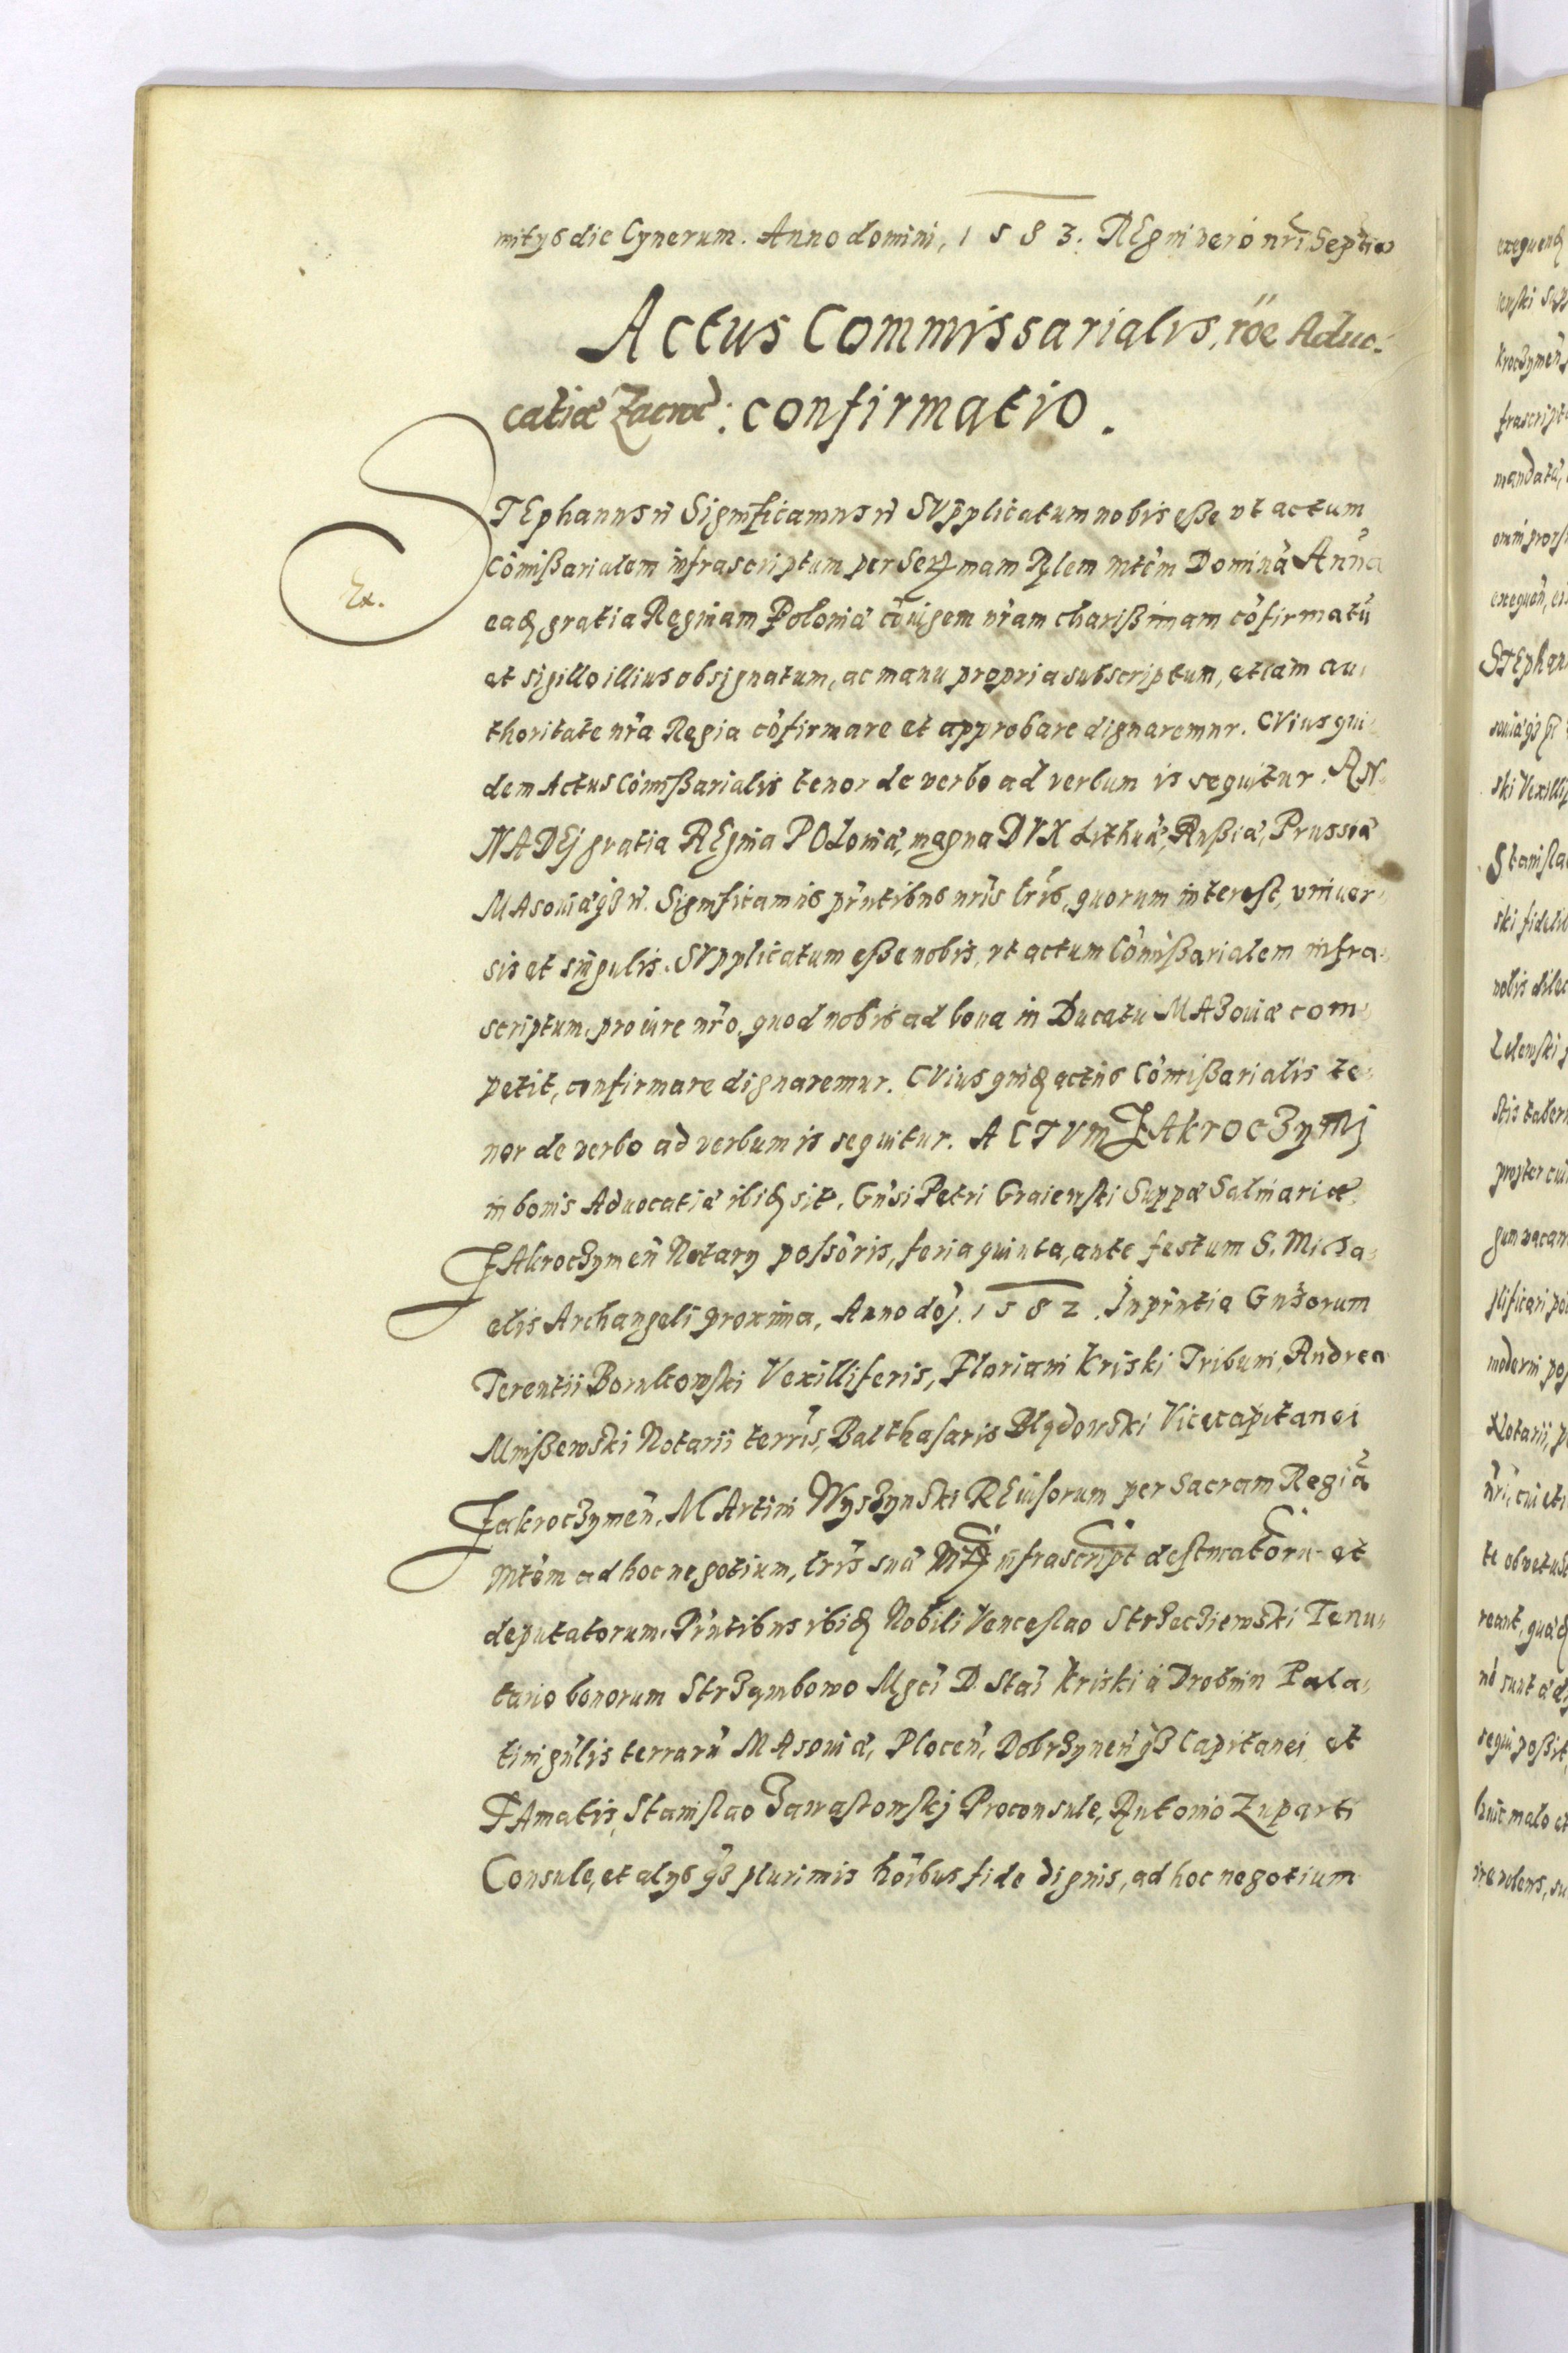 mitys die Cynerum. Anno domini, 1583. REgni vero nrī Septīo
Actus Commissarialis, rōe Aduo-
catiæ Zacroč: confirmatio.
STEphannus ñ Significamus ñ SVpplicatum nobis eße vt actum
Ex.
Cōmißarialem infrascriptum per Serꝫmam Rglem Mtēm Dominā Annā
eadꝫ gratia Reginam Poloniæ cōiugem nr̄am charißimam cōfirmatū
et sigillo illius obsignatum, ac manu propria subscriptum, etiam au-
thoritate nr̄a Regia cōfirmare et approbare dignaremur. CVius qui-
dem Actus Cōmißarialis tenor de verbo ad verbum is sequitur. AN-
NA DEj gratia REgina POloniæ, magna DVX Lithuā, Rußiæ, Prussiæ
MAsouiæ qꝫ ñ. Significamus pr̄ntibus nr̄is lr̄is, quorum interest, vniuer-
sis et singulis. SVpplicatum eße nobis, vt actum Cōmißarialem infra-
scriptum, pro iure nr̄o, quod nobis ad bona in Ducatu MAZouiæ com-
petit, confirmare dignaremur. CVius quidꝫ actus Cōmißarialis te-
nor de verbo ad verbum is sequitur. ACTVm ZAkroczymj
in bonis Aduocatiæ ibidꝫ sit. Gn̄si Petri Graienski Suppæ Salinariæ
ZAkroczymeñ Notarij possōris, feria quinta, ante festum S. Micha-
elis Archangeli proxima, Anno dōj. 1582. In pr̄ntia Gn̄sorum
Terentii Bomkowski Vexilliferis, Floriani Kriski Tribuni, Andrea
Mnißewski Notarii terrīs, Balthasaris Blędowski Vicecapitanei
Zakroczymeñ, MArtini Wyszynski REuisorum per Sacram Regiā
Mtēm ad hoc negotium, lr̄is suæ Mtꝫ infrascript destinatorū et
deputatorum. Pr̄ntibus ibidꝫ Nobili Venceslao Strzecziewski Tenu-
tario bonorum Strzymbowo Mgcī D. Stāī Kriski a Drobnin Pala-
tini gn̄lis terrarū MAsouiæ, Ploceñ, Dobrzyneñ qꝫ Capitanei et
FAmatis, Stanislao Zawastowskj Proconsule, Antonio Zuparti
Consule, et alys qꝫ plurimis hōibus fide dignis, ad hoc negotium